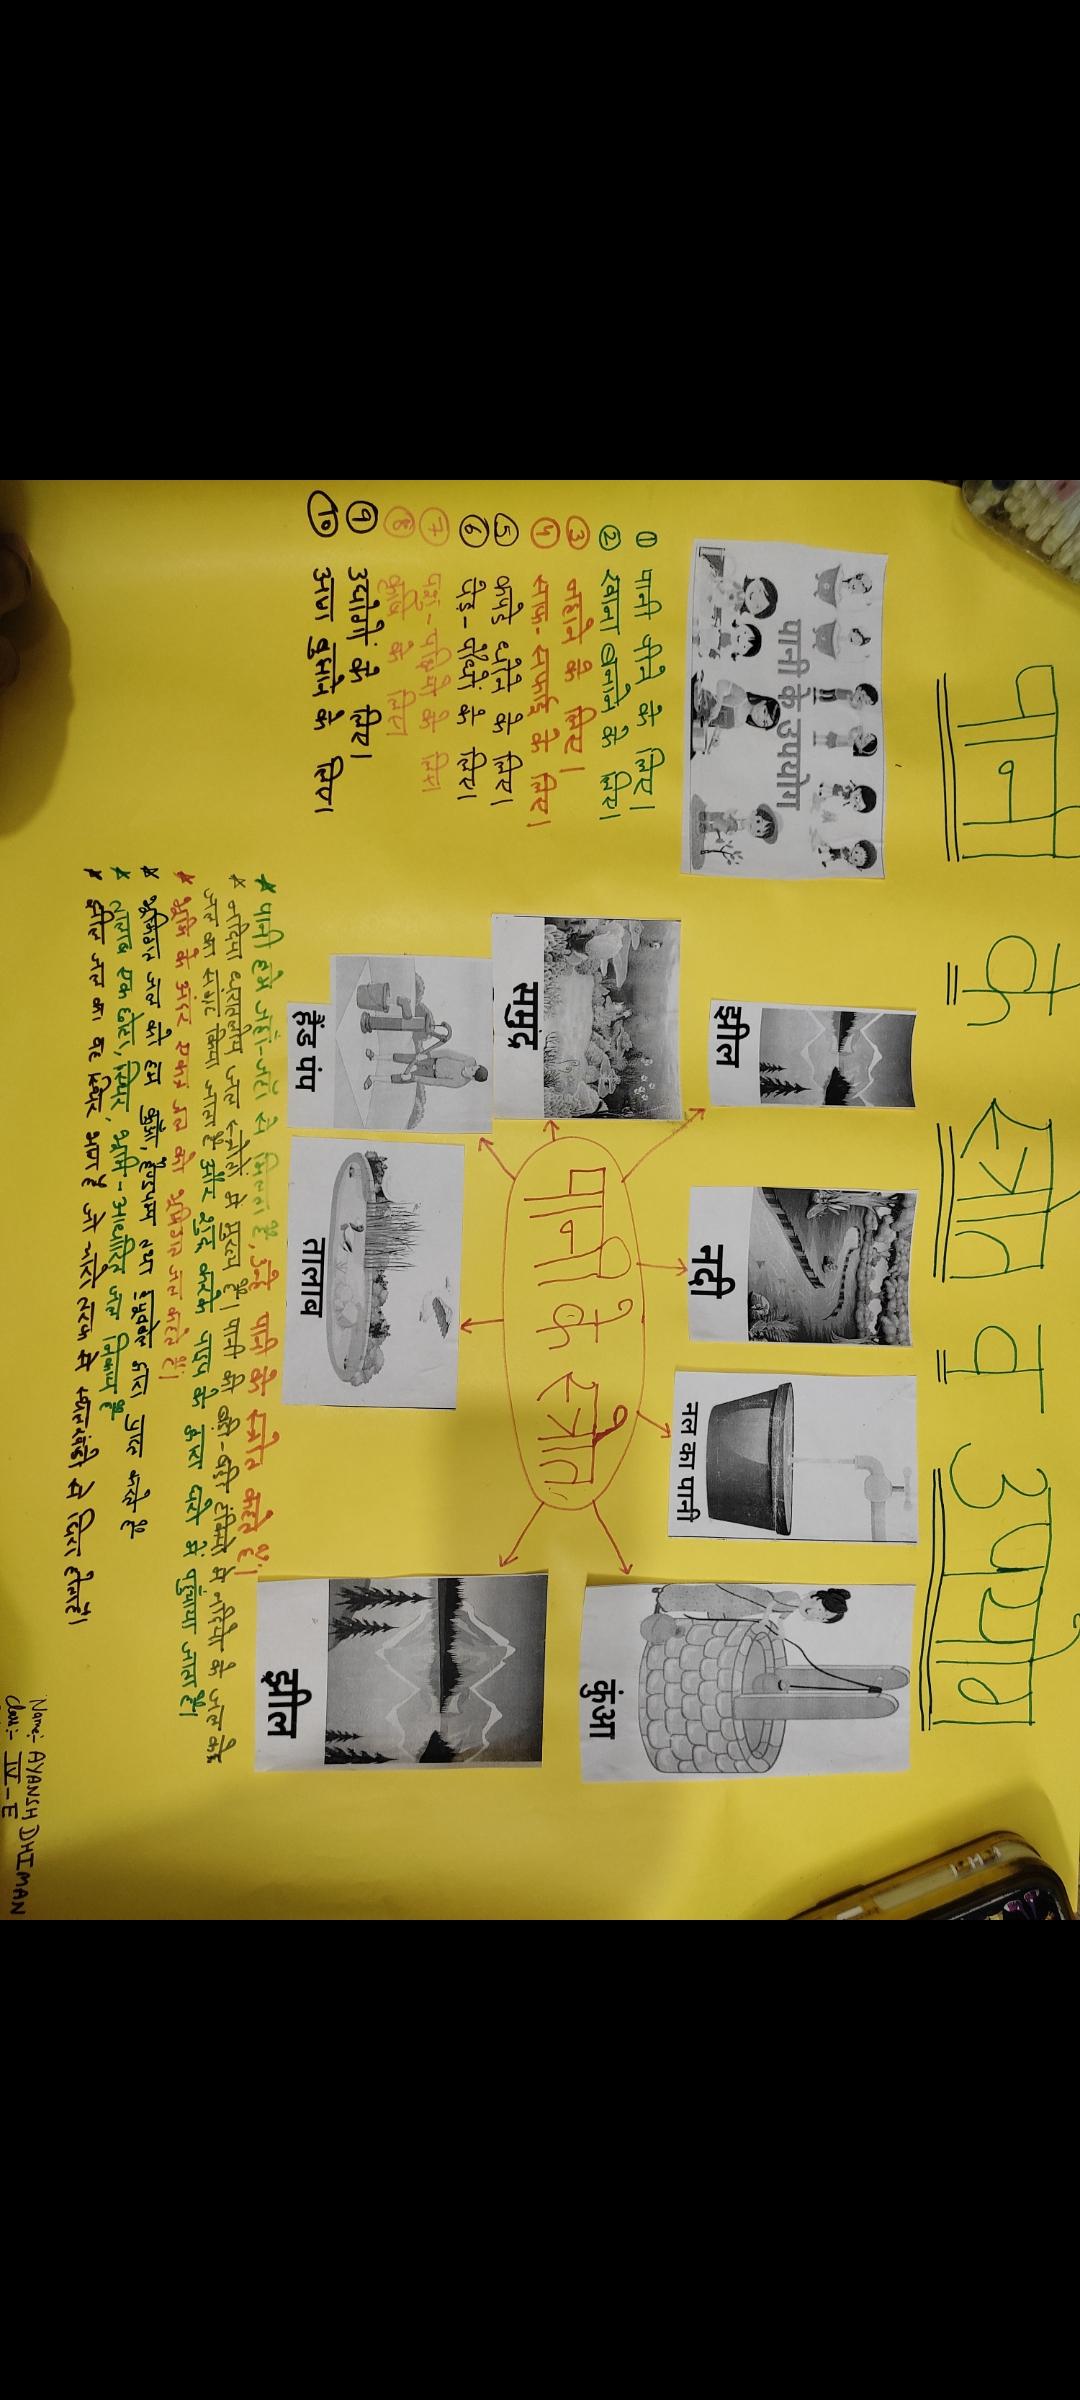 पानी के स्त्रोत व उपयोग
पानी के उपयोग
① पानी पीने के लिए।
② खाना बनाने के लिए।
③ नहाने के लिए।
④ साफ-सफाई के लिए।
⑤ कपड़े धोने के लिए।
⑥ पेड़-पौधों के लिए।
⑦ पशु-पक्षियों के लिए।
⑧ कृषि के लिए।
⑨ उद्योगों के लिए।
⑩ आग बुझाने के लिए।
झील
नदी
नल का पानी
कुंआ
समुद्र
पानी के स्त्रोत
हैंड पंप
तालाब
झील
* पानी हमे जहाँ-जहाँ से मिलता है, उन्हें पानी के स्त्रोत कहते हैं।
* नदियां धरातलीय जल स्त्रोतों में मुख्य है। पानी की बड़ी-बड़ी टंकियों में नदियों के जल के
जल का संग्रह किया जाता है और शुद्ध करके पाइप के द्वारा घरो में पहुँचाया जाता है।
* भूमि के अंदर एकत्र जल को भूमिगत जल कहते हैं।
* भूमिगत जल को हम कुओं, हैण्डपम्प तथा द्वारा प्राप्त करते है
* तालाब एक छोटा, स्थिर, भूमि-आधारित जल निकाय है
* झील जल का वह स्थिर भाग है जो चारो तरफ से स्थलखंडो से घिरा होता है।
Name:- AYANSH DHIMAN
Class:- IV-E